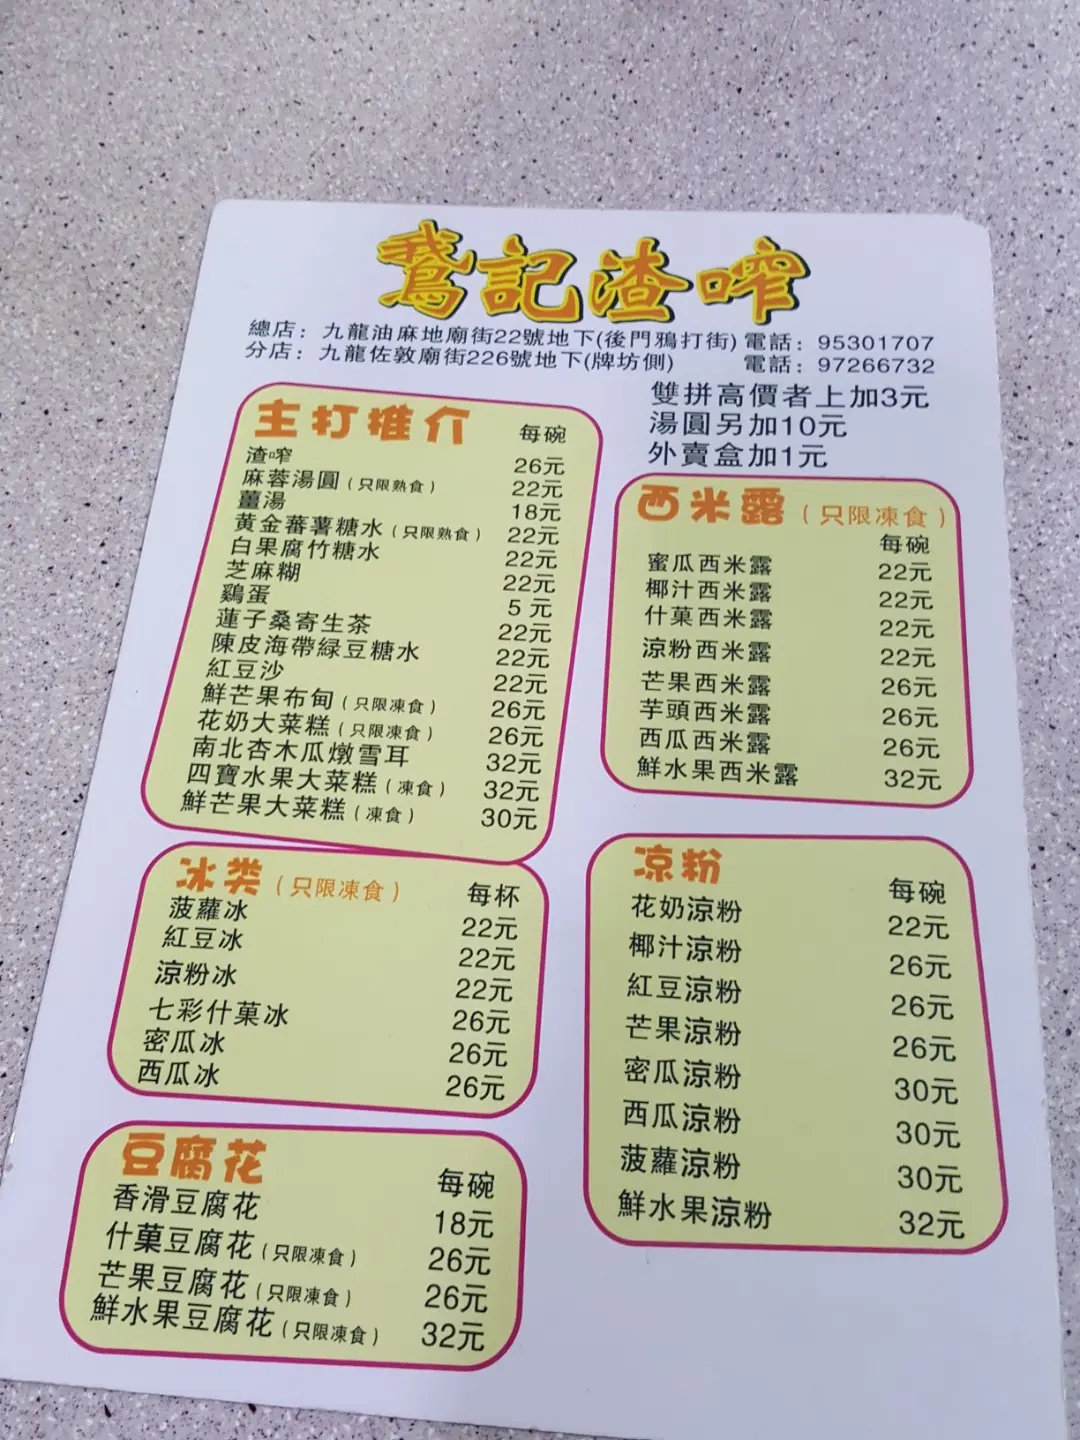 鵞記渣咋
總店：九龍油麻地廟街22號地下(後門鴉打街) 電話：95301707
分店：九龍佐敦廟街226號地下(牌坊側) 電話：97266732
雙拼高價者上加3元
湯圓另加10元
外賣盒加1元
主打推介 每碗
渣咋 26元
麻蓉湯圓(只限熟食) 22元
薑湯 18元
黃金蕃薯糖水(只限熟食) 22元
白果腐竹糖水 22元
芝麻糊 22元
鷄蛋 5元
蓮子桑寄生茶 22元
陳皮海帶緑豆糖水 22元
紅豆沙 22元
鮮芒果布甸(只限凍食) 26元
花奶大菜糕(只限凍食) 26元
南北杏木瓜燉雪耳 32元
四寶水果大菜糕(凍食) 32元
鮮芒果大菜糕(凍食) 30元
西米露(只限凍食)
每碗
蜜瓜西米露 22元
椰汁西米露 22元
什菓西米露 22元
涼粉西米露 22元
芒果西米露 26元
芋頭西米露 26元
西瓜西米露 26元
鮮水果西米露 32元
冰类(只限凍食) 每杯
菠蘿冰 22元
紅豆冰 22元
涼粉冰 22元
七彩什菓冰 26元
密瓜冰 26元
西瓜冰 26元
凉粉 每碗
花奶涼粉 22元
椰汁涼粉 26元
紅豆涼粉 26元
芒果涼粉 26元
密瓜涼粉 30元
西瓜涼粉 30元
菠蘿涼粉 30元
鮮水果涼粉 32元
豆腐花 每碗
香滑豆腐花 18元
什菓豆腐花(只限凍食) 26元
芒果豆腐花(只限凍食) 26元
鮮水果豆腐花(只限凍食) 32元